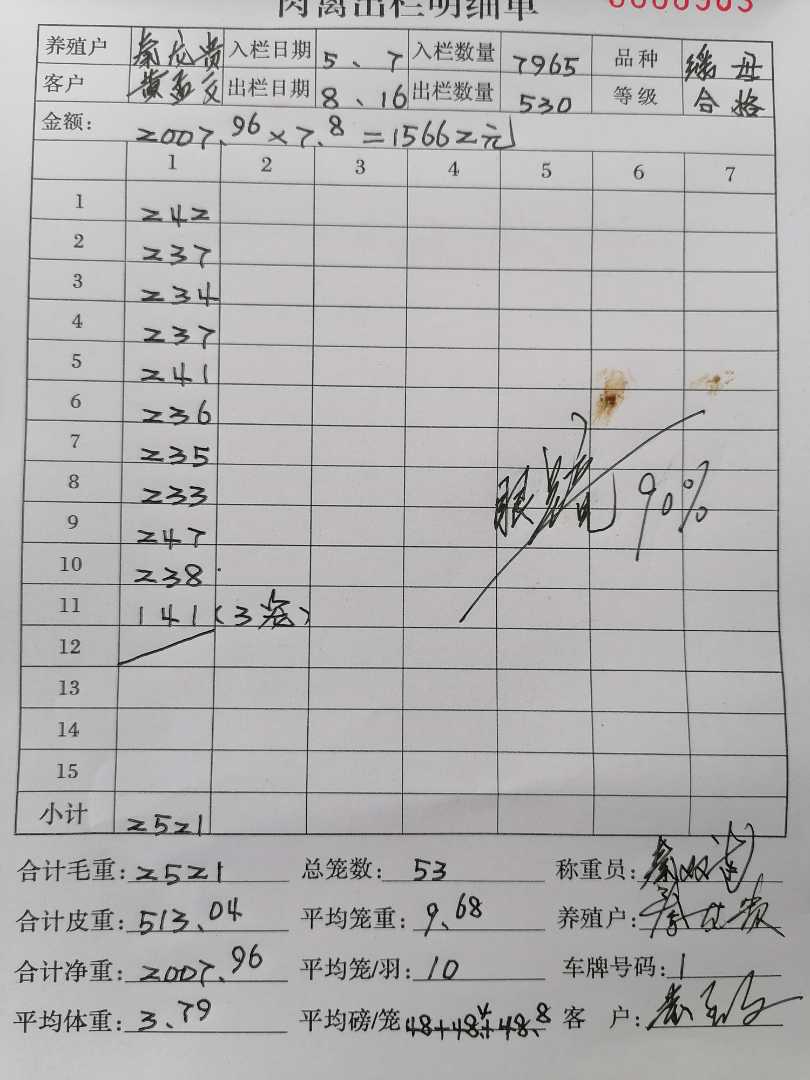 肉禽出栏明细单 0000503
养殖户 秦龙贵 入栏日期 5、7 入栏数量 7965 品种 瑶母
客户 黄孟交 出栏日期 8、16 出栏数量 530 等级 合格
金额: 2007.96×7.8=15662元
1 2 3 4 5 6 7
1 242
2 237
3 234
4 237
5 241
6 236
7 235
8 233
9 247
10 238
11 141(3笼)
12
13
14
15
小计 2521
眼 90%
合计毛重: 2521 总笼数: 53 称重员: 秦
合计皮重: 513.04 平均笼重: 9.68 养殖户: 秦龙贵
合计净重: 2007.96 平均笼/羽: 10 车牌号码: 1
平均体重: 3.79 平均磅/笼 48+48.4+48.8 客 户: